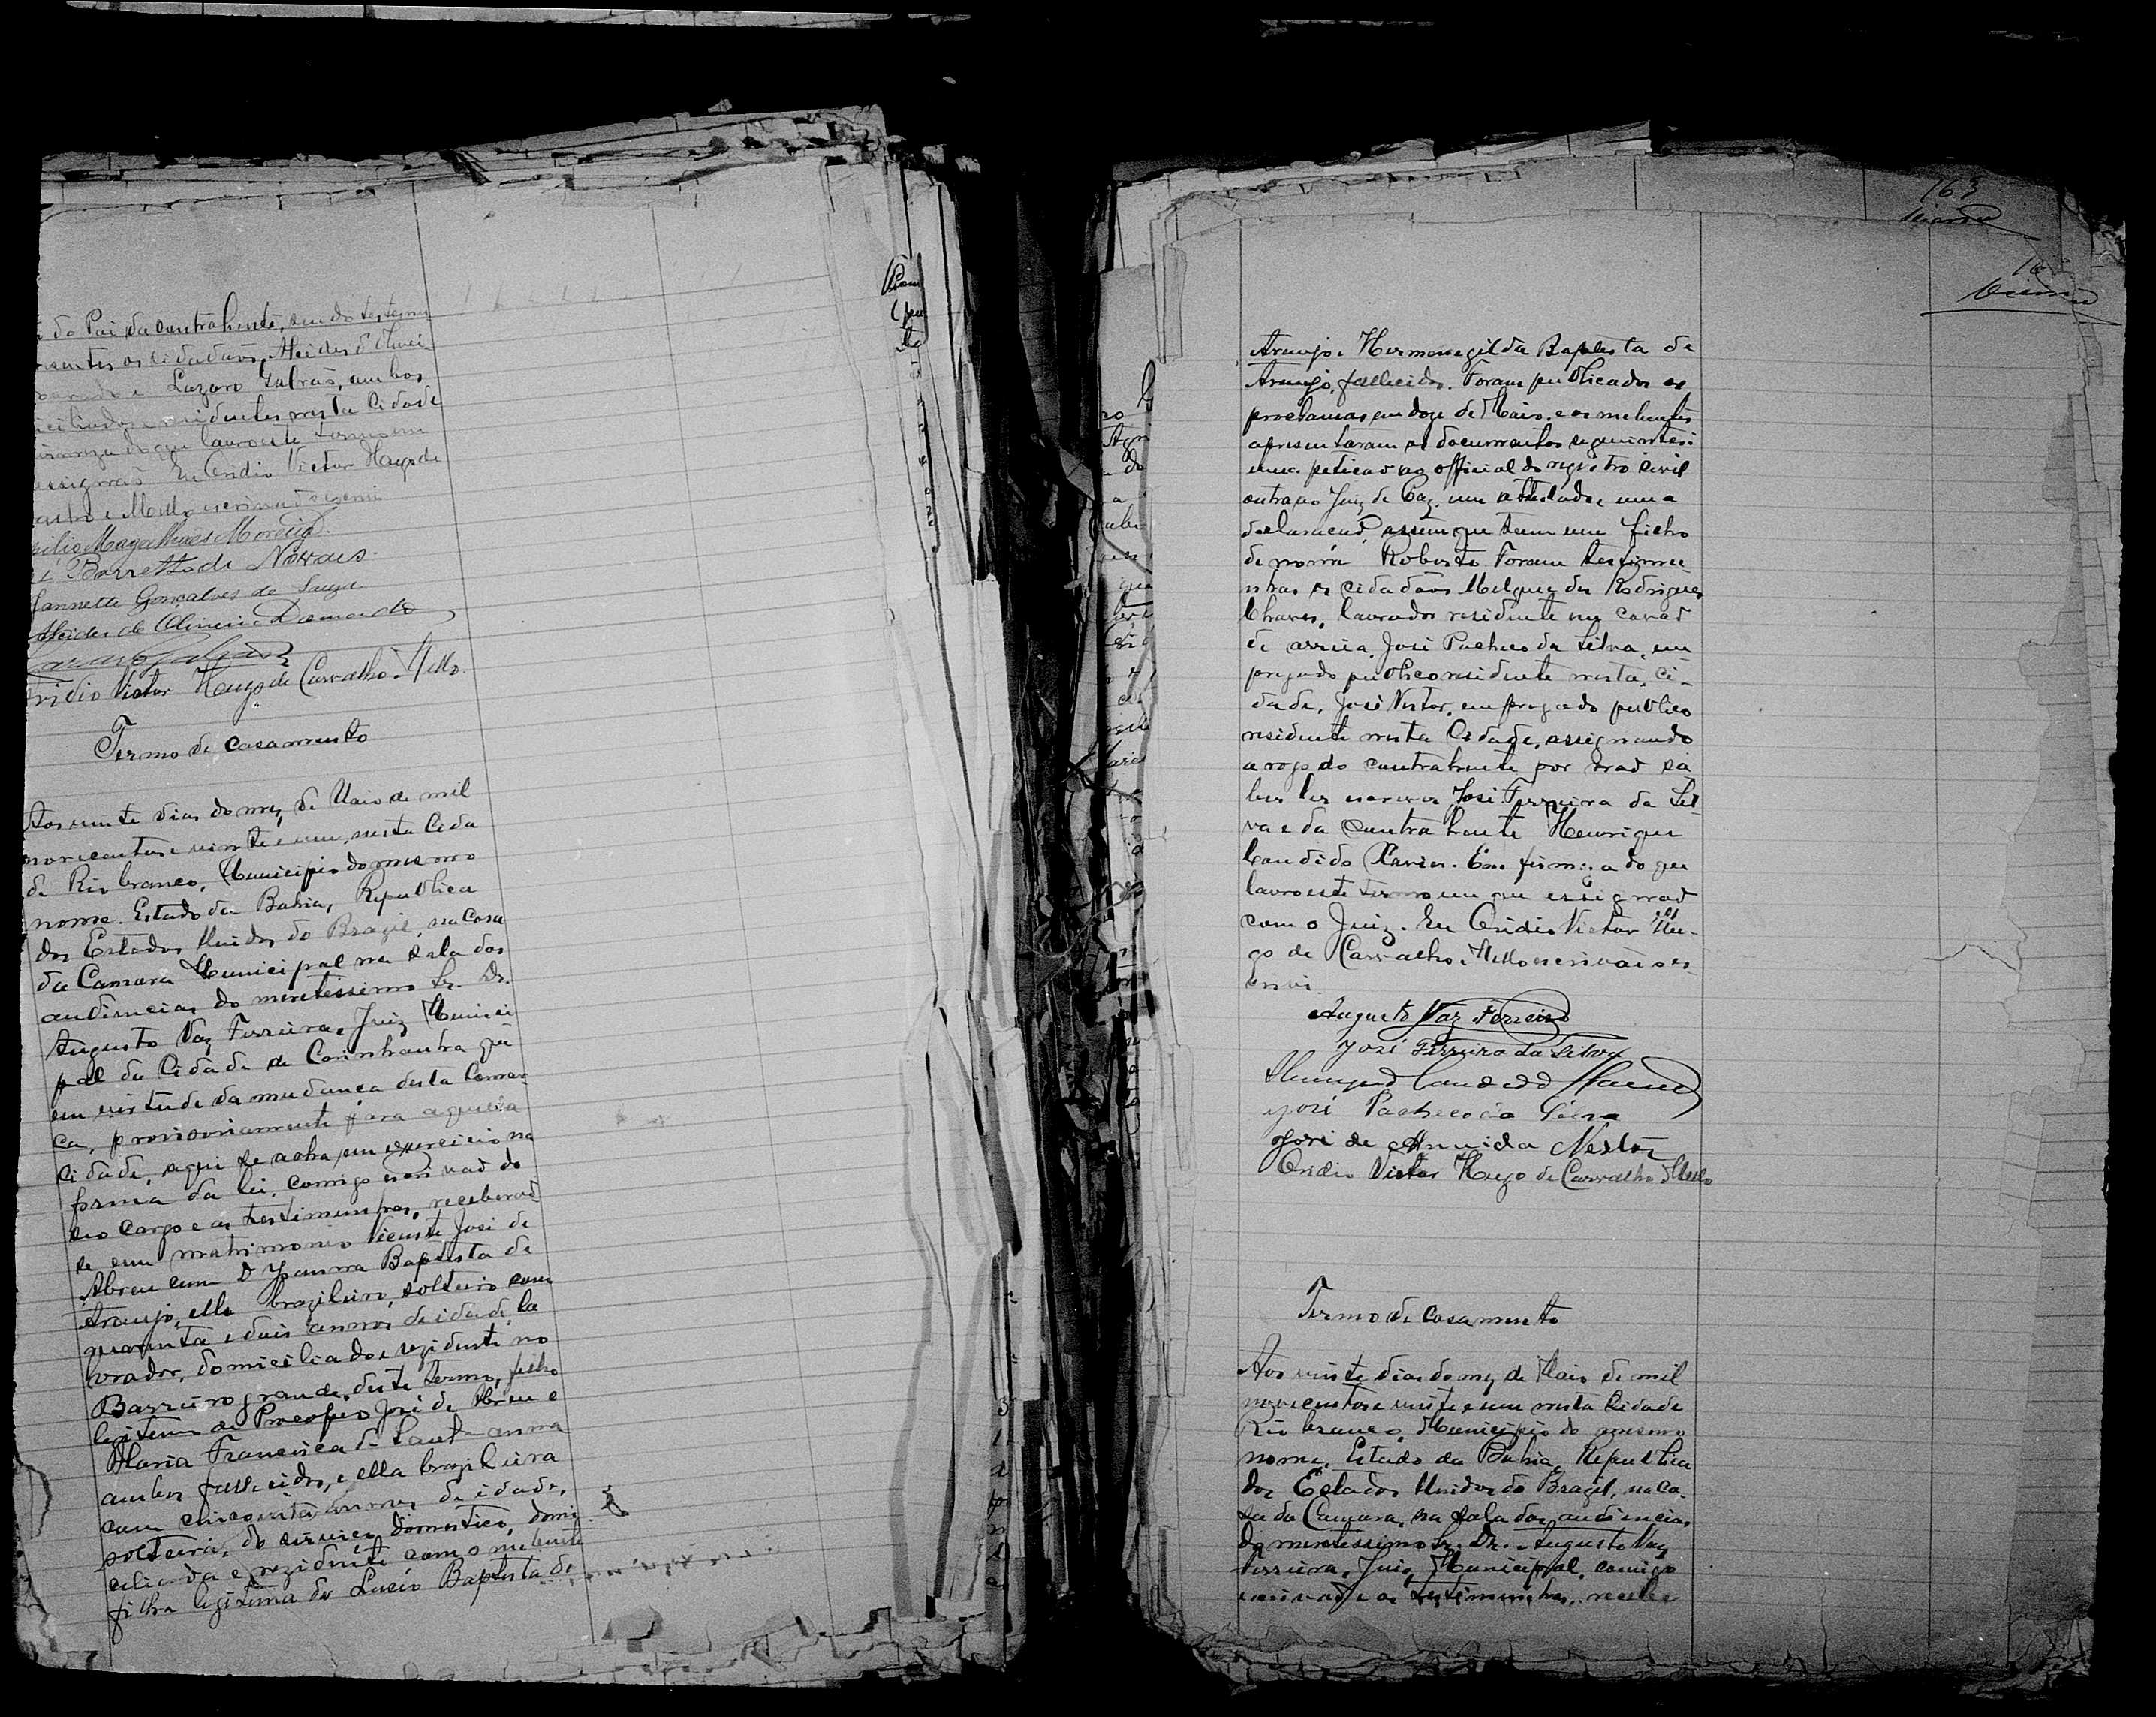 do Pai da contrahente, sendo testemu
os cidadãos, Alcides d'Olivei
e Lazaro Galrão, ambos
residentes nesta Cidade
do que lavro este termo em
assignão Eu Ovidio Victor Hugo de
Mello escrivão escrevi
Magalhães Moreira
Barretto de Novaes
Jannette Gonçalves de Souza
Alcides de Oliveira Damado
Lazaro Galrão
Ovidio Victor Hugo de Carvalho Mello
Termo de casamento
Aos vinte dias do mez de Maio de mil
novecentos e vinte e um, nesta Cida
de Rio branco, Municipio do mesmo
nome. Estado da Bahia, Republica
dos Estados Unidos do Brazil, na Casa
da Camara Municipal na sala das
audiencias do meretissimo Sr. Dr.
Augusto Vaz Ferreira, Juiz Munici
pal da Cidade de Carinhanha que
em virtude da mudança desta Comar
ca, provisoriamente para aquella
cidade, aqui se acha, em exercicio na
forma da lei, comigo escrivão do
seo cargo e as testimunhas, receberaõ
se em matrimonio Vicente José de
Abreu com D Joanna Baptista de
Araujo, elle brazileiro, solteiro com
quarenta e dois annos de idade, la
vrador, domiciliado e rezidente no
Barreiro grande, deste termo, filho
legitimo de Procopio José de Abreu e
Maria Francisca de Sant'anna
ambos fallecidos, e ella brazileira
com cincoenta annos de idade,
solteira, do serviço domestico, domi
ciliada e rezidente com o nubente
filha legitima de Lucio Baptista de
163
Araujo e Hermenegilda Baptista de
Araujo, fallecidos. Foram publicados os
proclamas em doze de Maio, e os nubentes
apresentaram os documentos seguintes:
uma petição ao official do registro civil
outra ao Juiz de Paz, um attestado e uma
declaração, assim que tem um filho
de nome Roberto. Foram testimu
nhas os cidadãos Melquades Rodrigues
Chaves, lavrador residente no
José Pacheco da Silva, em
pregado publico residente nesta Ci-
dade, José Nestor, empregado publico
residente nesta Cidade, assignando
a rogo do contrahente por não sa
ber ler escrever José Ferreira da Sil
va e da contrahente Henrique
Candido Xavier. Em firmeza do que
lavro este termo em que assignaõ
com o Juiz. Eu Ovidio Victor Hu-
go de Carvalho e Mello escrivão es
crevi
Augusto Vaz Ferreira
José Ferreira da Silva
Henrique Candido Xavier
José Pacheco da Silva
José de Almeida Nestor
Ovidio Victor Hugo de Carvalho Mello
Termo de casamento
Aos vinte dias do mez de Maio de mil
novecentos e vinte e um nesta Cidade
Rio branco, Municipio do mesmo
nome, Estado da Bahia, Republica
dos Estados Unidos do Brazil, na Ca-
sa da Camara, na sala das audiencias
do meretissimo Sr. Dr. Augusto Vaz
Ferreira, Juiz Municipal, comigo
escrivão e as testimunhas, recebe